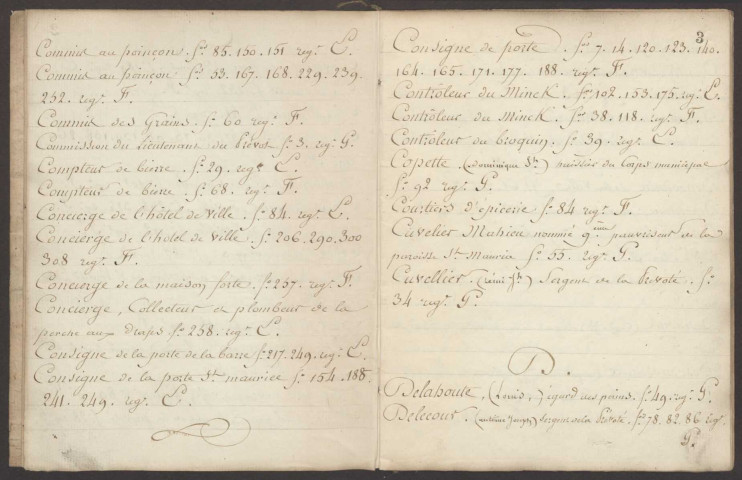 Commis au poinçon. fo. 85. 150. 151 regre. E.
Commis au poinçon fo 53. 167. 168. 229. 239.
252. regre. F.
Commis des Grains. fo 60 regre F.
Commission du Lieutenant du Prévot fo 3. regre G.
Compteur de bierre. fo 29. regre E.
Compteur de bierre. fo 68. regre F.
Concierge de l'hôtel de Ville. fo 84. regre E.
Concierge de l'hotel de Ville. fo 206. 290. 300
308 regre F.
Concierge de la maison forte. fo 257. regre F.
Concierge, Collecteur et plombeur de la
perche aux Draps. fo 258. regre E.
Consigne de la porte de la barre fo 217. 249. regre E.
Consigne de la porte St. maurice fo 154. 188.
241. 249. regre E.
3
Consigne de porte. fo 7. 14. 120. 123. 140.
164. 165. 171. 177. 188. regre F.
Contrôleur du Minck. fo 102. 153. 175. regre E.
Contrôleur du Minck. fo 38. 118. regre F.
Contrôleur du broquin. fo 39. regre E.
Copette (dominique Jh) huissier du Corps municipal
fo 92 regre G.
Courtiers d'épicerie fo 84 regre F.
Cuvelier Mahieu nommé 9.eme pauvriseur de la
paroisse St. Maurice fo 55. regre G.
Cuvellier. (rémi Jh) Sergent de la Prévoté. fo
34 regre G.
D.
Delahoute, (Louis,) égard des pains. fo 49. regre G.
Delecour. (antoine Joseph) Sergent de la Prévoté. fo 78. 82. 86 regre
G.